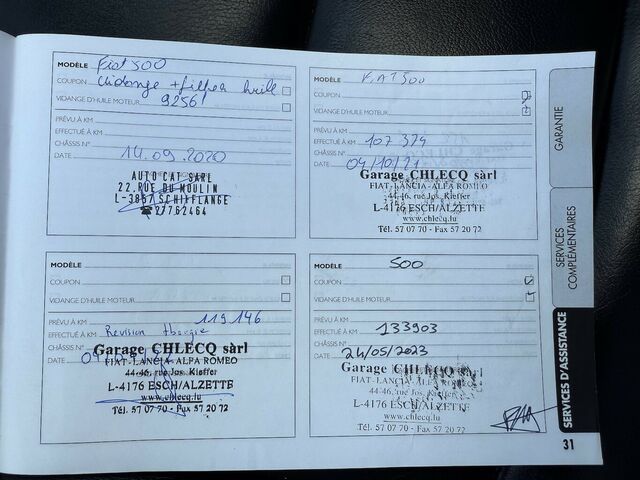 MODÈLE Fiat 500
COUPON vidange + filtre huile
VIDANGE D'HUILE MOTEUR
PRÉVU À KM
EFFECTUÉ À KM
CHÂSSIS N°
DATE 14.09.2020
AUTO CAT SARL
22.RUE DU MOULIN
L-3857 SCHIFFLANGE
☎27762464
MODÈLE FIAT 500
COUPON
VIDANGE D'HUILE MOTEUR
PRÉVU À KM
EFFECTUÉ À KM 107 374
CHÂSSIS N°
DATE 04/10/21
Garage CHLECQ sàrl
FIAT-LANCIA-ALFA ROMEO
44-46, rue Jos. Kieffer
L-4176 ESCH/ALZETTE
www.chlecq.lu
Tél. 57 07 70 - Fax 57 20 72
MODÈLE
COUPON
VIDANGE D'HUILE MOTEUR
PRÉVU À KM 119 146
EFFECTUÉ À KM Revision
CHÂSSIS N°
DATE
Garage CHLECQ sàrl
FIAT-LANCIA-ALFA ROMEO
44-46, rue Jos. Kieffer
L-4176 ESCH/ALZETTE
www.chlecq.lu
Tél. 57 07 70 - Fax 57 20 72
MODÈLE 500
COUPON
VIDANGE D'HUILE MOTEUR
PRÉVU À KM
EFFECTUÉ À KM 133903
CHÂSSIS N°
DATE 24/05/2023
Garage CHLECQ sàrl
FIAT-LANCIA-ALFA ROMEO
44-46, rue Jos. Kieffer
L-4176 ESCH/ALZETTE
www.chlecq.lu
Tél. 57 07 70 - Fax 57 20 72
GARANTIE
SERVICES
COMPLÉMENTAIRES
SERVICES D'ASSISTANCE
31